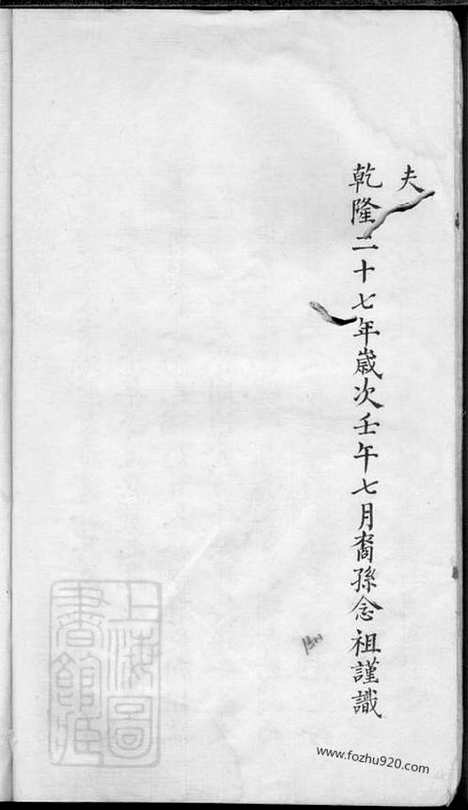 夫
乾隆二十七年歲次壬午七月裔孫念祖謹識
上海圖
書館藏
www.fozhu920.com